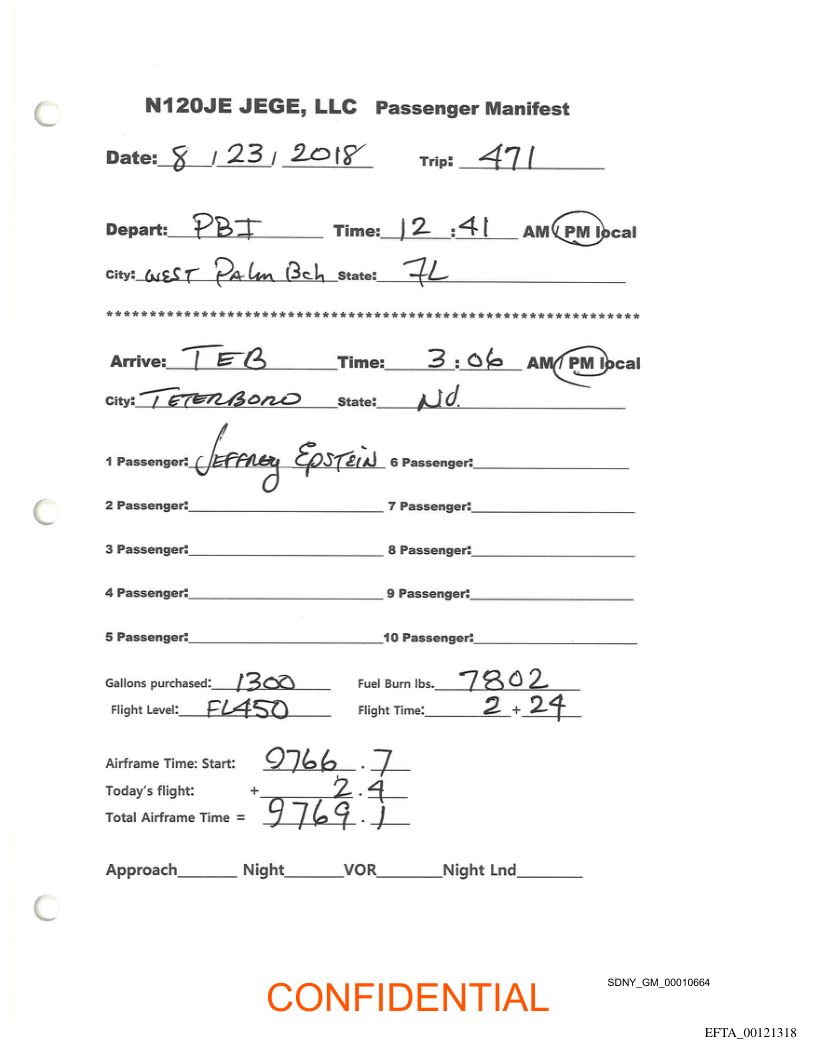 N120JE JEGE, LLC Passenger Manifest
Date: 8 / 23 / 2018 Trip: 471
Depart: PBI Time: 12 : 41 AM / PM local
City: WEST PALM Bch State: FL
***************************************************************
Arrive: TEB Time: 3 : 06 AM / PM local
City: TETERBORO State: NJ.
1 Passenger: JEFFREY EPSTEIN 6 Passenger:
2 Passenger: 7 Passenger:
3 Passenger: 8 Passenger:
4 Passenger: 9 Passenger:
5 Passenger: 10 Passenger:
Gallons purchased: 1300 Fuel Burn lbs. 7802
Flight Level: FL450 Flight Time: 2 + 24
Airframe Time: Start: 9766 . 7
Today's flight: + 2 . 4
Total Airframe Time = 9769 . 1
Approach Night VOR Night Lnd
SDNY_GM_00010664
CONFIDENTIAL
EFTA_00121318